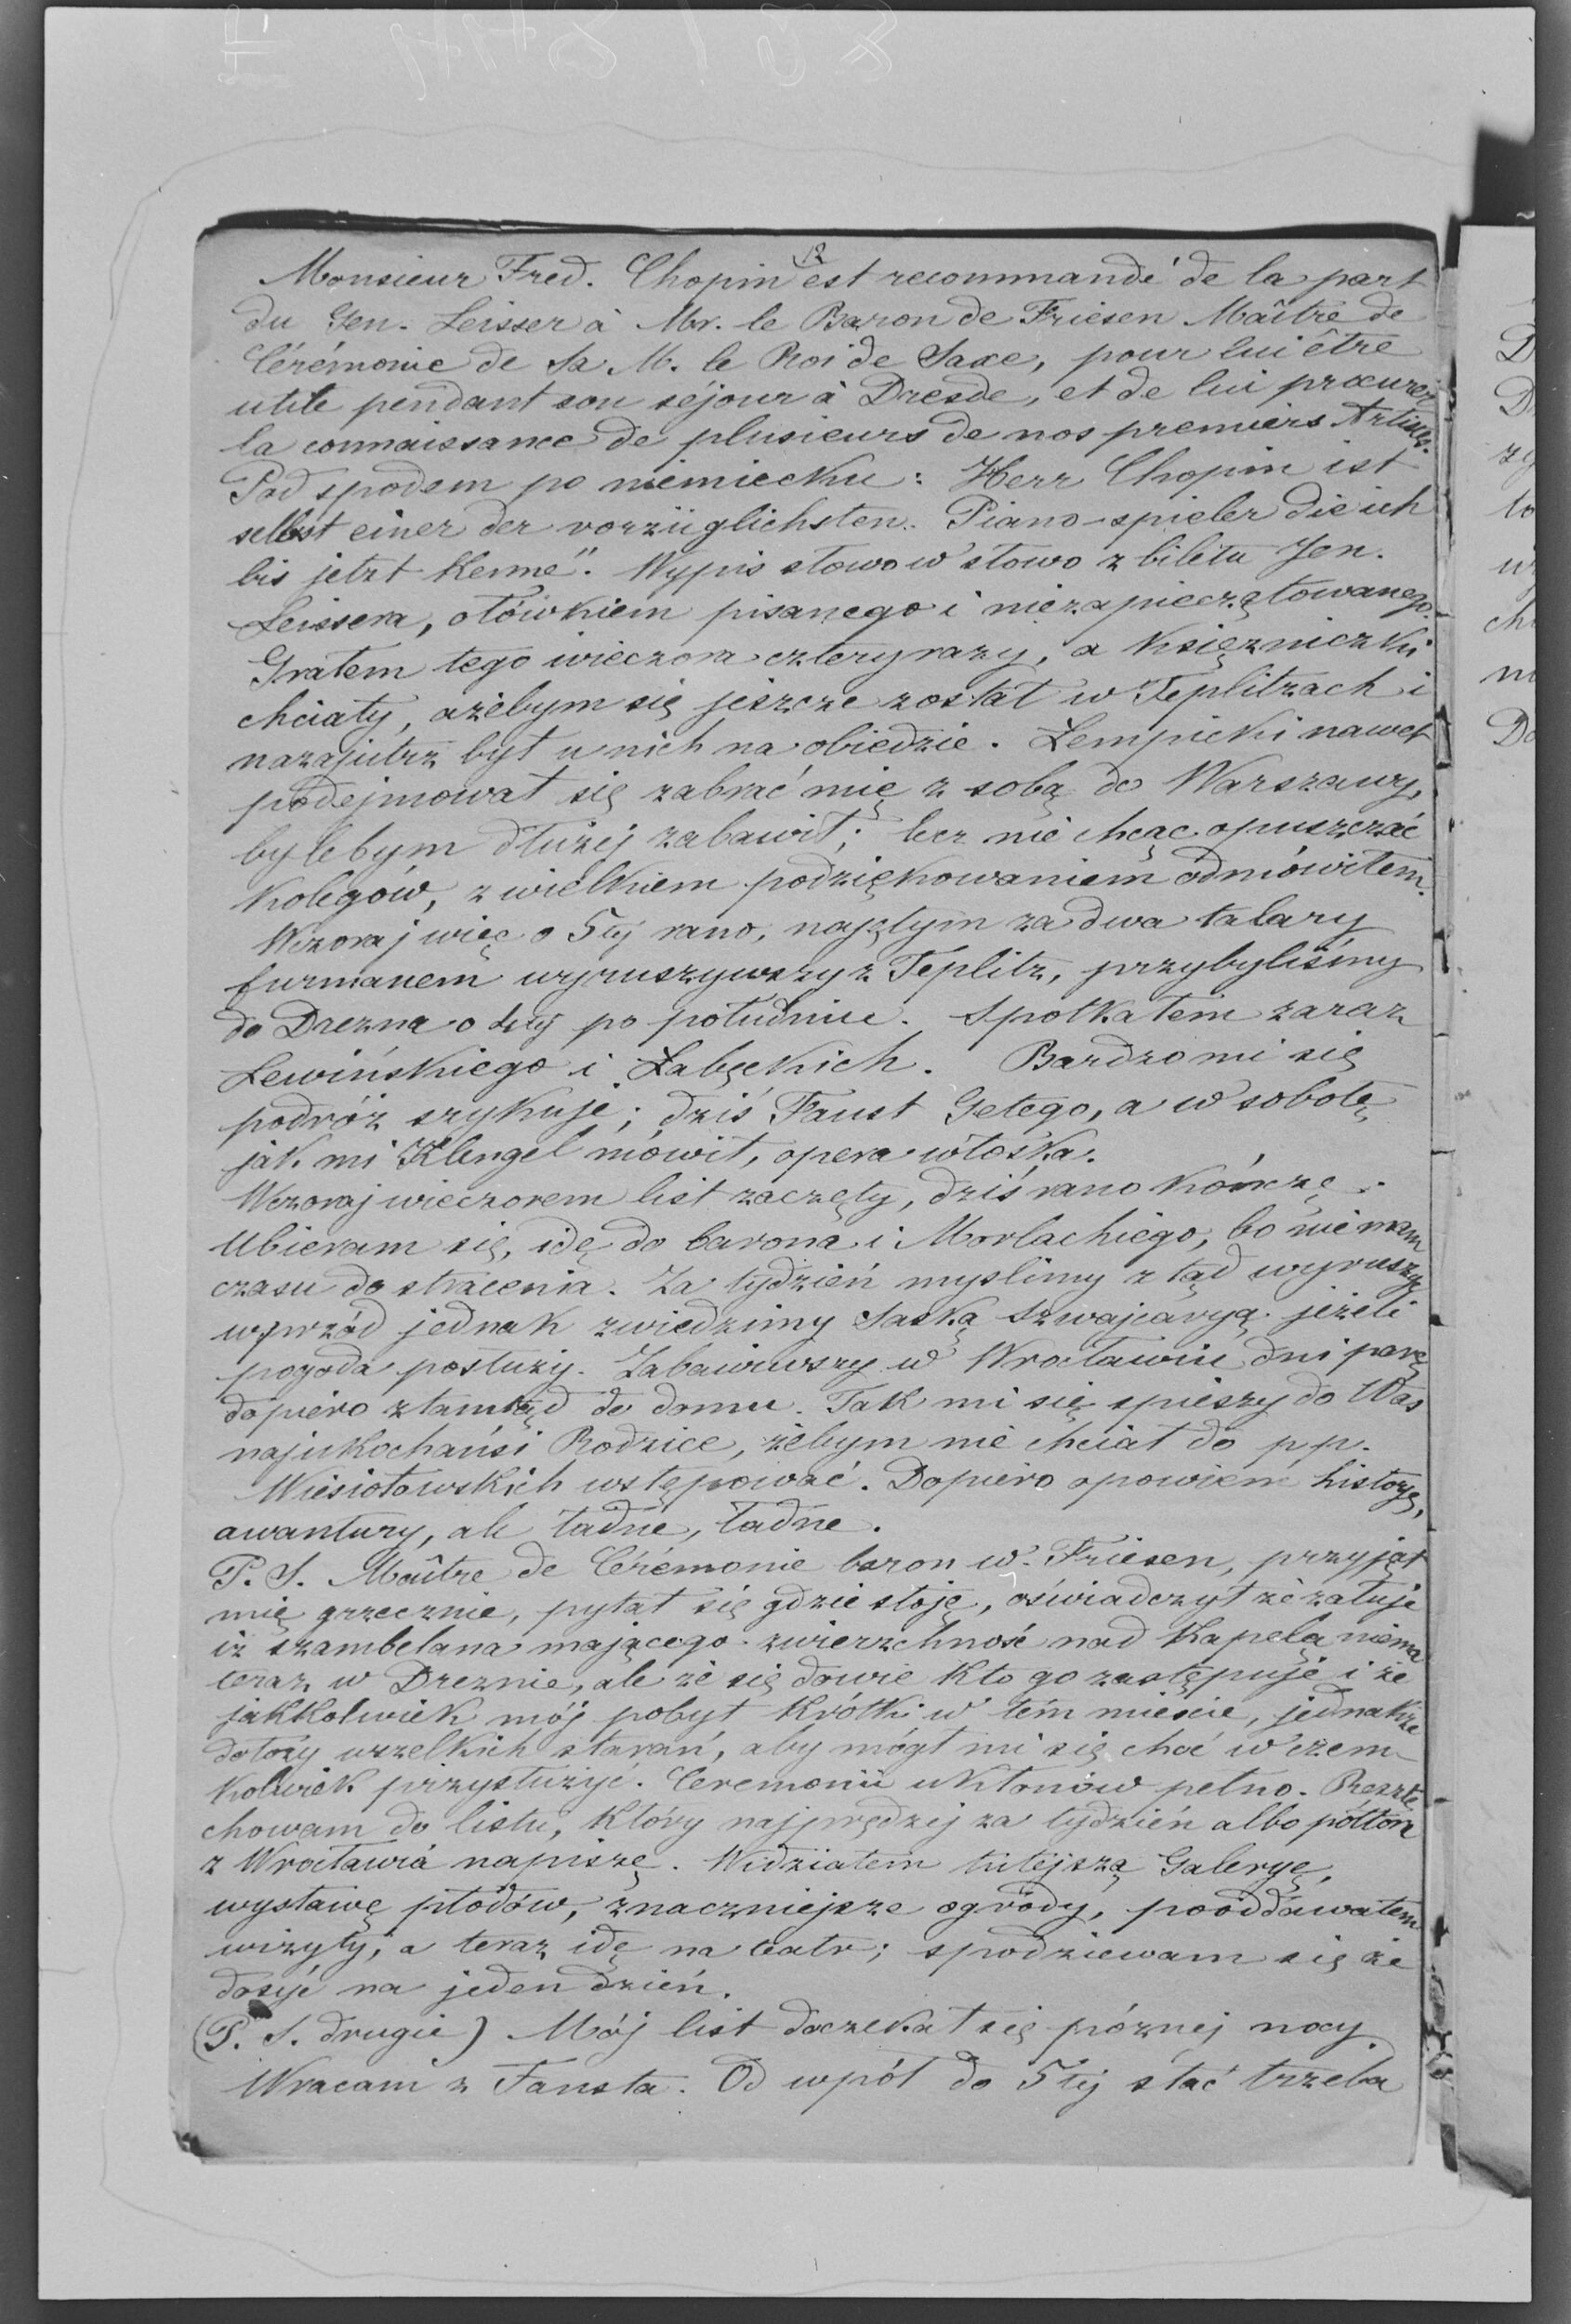 12
Monsieur Fred. Chopin est recommandé de la part
du Gen. Leisser à Mr. le Baron de Friesen Maître de
Cérémonie de Sa M. le Roi de Saxe, pour lui être
utile pendant son séjour à Dresde, et de lui procurer
la connaissance de plusieurs de nos premiers Artistes.
Pod spodem po niemiecku: Herr Chopin ist
selbst einer der vorzüglichsten Piano-spieler die ich
bis jetzt kenne". Wypis słowo w słowo z biletu Jen.
Leissera, ołówkiem pisanego i niezapieczętowanego.
Grałem tego wieczora cztery razy, a księżniczki
chciały, ażebym się jeszcze został w Teplitzach i
nazajutrz był u nich na obiedzie. Łempicki nawet
podejmował się zabrać mię z sobą do Warszawy,
bylebym dłużej zabawił; lecz nie chcąc opuszczać
kolegów, z wielkiem podziękowaniem odmówiłem.
Wczoraj więc o 5tej rano, najętym za dwa talary
furmanem wyruszywszy z Teplitz, przybyliśmy
do Drezna o 4tej po południu. Spotkałem zaraz
Lewińskiego i Łabęckich. Bardzo mi się
podróż szykuje; dziś Faust Getego, a w sobotę
jak mi Klengel mówił, opera włoska.
Wczoraj wieczorem list zaczęty, dziś rano kończę.
Ubieram się, idę do barona i Morlachiego, bo nie mam
czasu do stracenia. Za tydzień myslimy z tąd wyruszyć
wprzód jednak zwiedzimy Saską Szwajcaryą jeżeli
pogoda posłuży. Zabawiwszy w Wrocławiu dni parę
dopiero ztamtąd do domu. Tak mi się spieszy do Was
najukochańsi Rodzice, żebym nie chciał do pp.
Wiesiołowskich wstępować. Dopiero opowiem historye,
awantury, ale ładne, ładne.
P. S. Maître de Cérémonie baron w. Friesen, przyjął
mię grzecznie, pytał się gdzie stoję, oświadczył że żałuje
iż szambelana mającego zwierzchność nad kapelą niema
teraz w Dreznie, ale że się dowie kto go zastępuje i że
jakkolwiek mój pobyt krótki w tém mieście, jednakże
dołoży wszelkich starań, aby mógł mi się choć w czem-
kolwiek przysłużyć. Ceremonii ukłonów pełno. Resztę
chowam do listu, który najprędzej za tydzień albo półtora
z Wrocławia napiszę. Widziałem tutejszą Galeryę,
wystawę płodów, znaczniejsze ogrody, pooddawałem
wizyty, a teraz idę na teatr; spodziewam się że
dosyć na jeden dzień.
(P. S. drugie) Mój list doczekał się póznej nocy.
Wracam z Fausta. Od wpół do 5tej stać trzeba